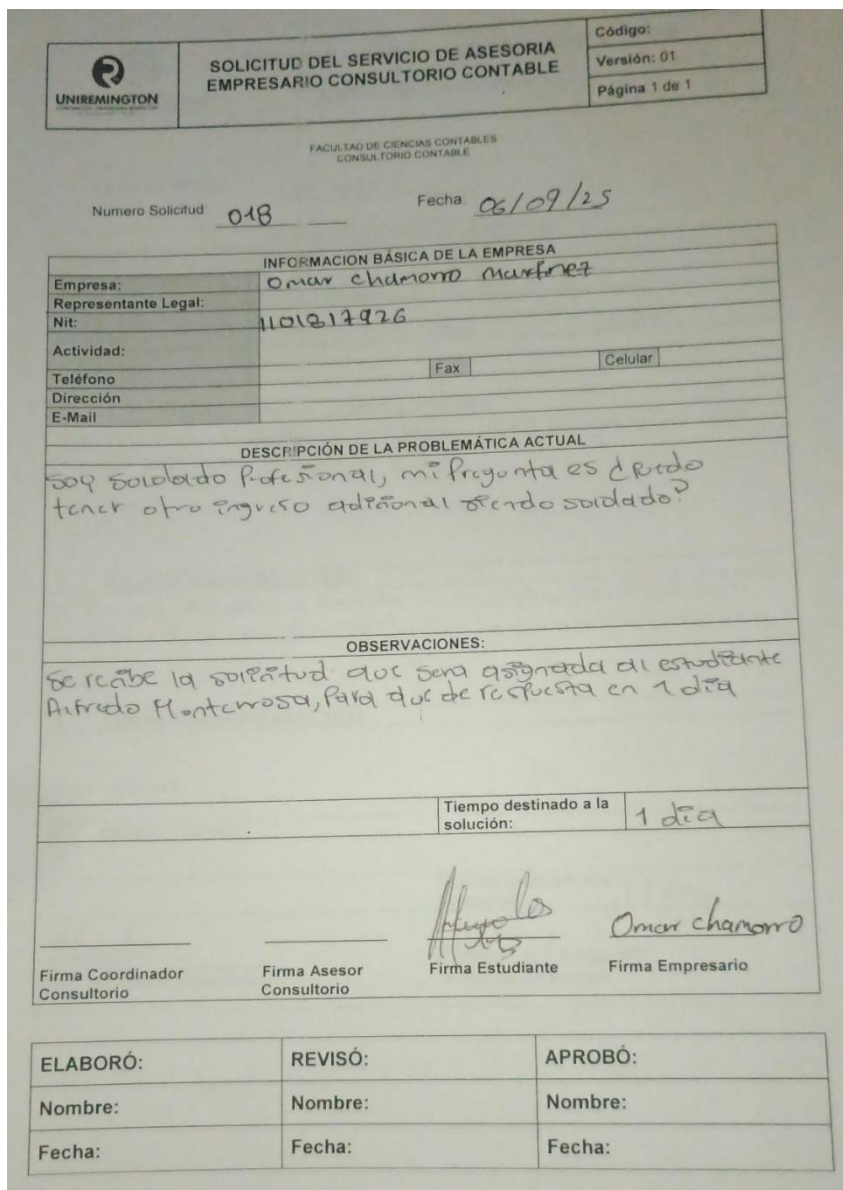 UNIREMINGTON
SOLICITUD DEL SERVICIO DE ASESORIA
EMPRESARIO CONSULTORIO CONTABLE
Código:
Versión: 01
Página 1 de 1
FACULTAD DE CIENCIAS CONTABLES
CONSULTORIO CONTABLE
Numero Solicitud 018
Fecha 06/09/25
INFORMACION BÁSICA DE LA EMPRESA
Empresa: Omar Chamorro Martinez
Representante Legal:
Nit: 1101817926
Actividad:
Teléfono Fax Celular
Dirección
E-Mail
DESCRIPCIÓN DE LA PROBLEMÁTICA ACTUAL
Soy Soldado Profesional, mi Pregunta es ¿Puedo
tener otro ingreso adicional siendo soldado?
OBSERVACIONES:
Se recibe la solicitud que sera asignada al estudiante
Alfredo Monterrosa, Para que de respuesta en 1 día
Tiempo destinado a la
solución: 1 día
Omar Chamorro
Firma Coordinador
Consultorio
Firma Asesor
Consultorio
Firma Estudiante
Firma Empresario
ELABORÓ: REVISÓ: APROBÓ:
Nombre: Nombre: Nombre:
Fecha: Fecha: Fecha: